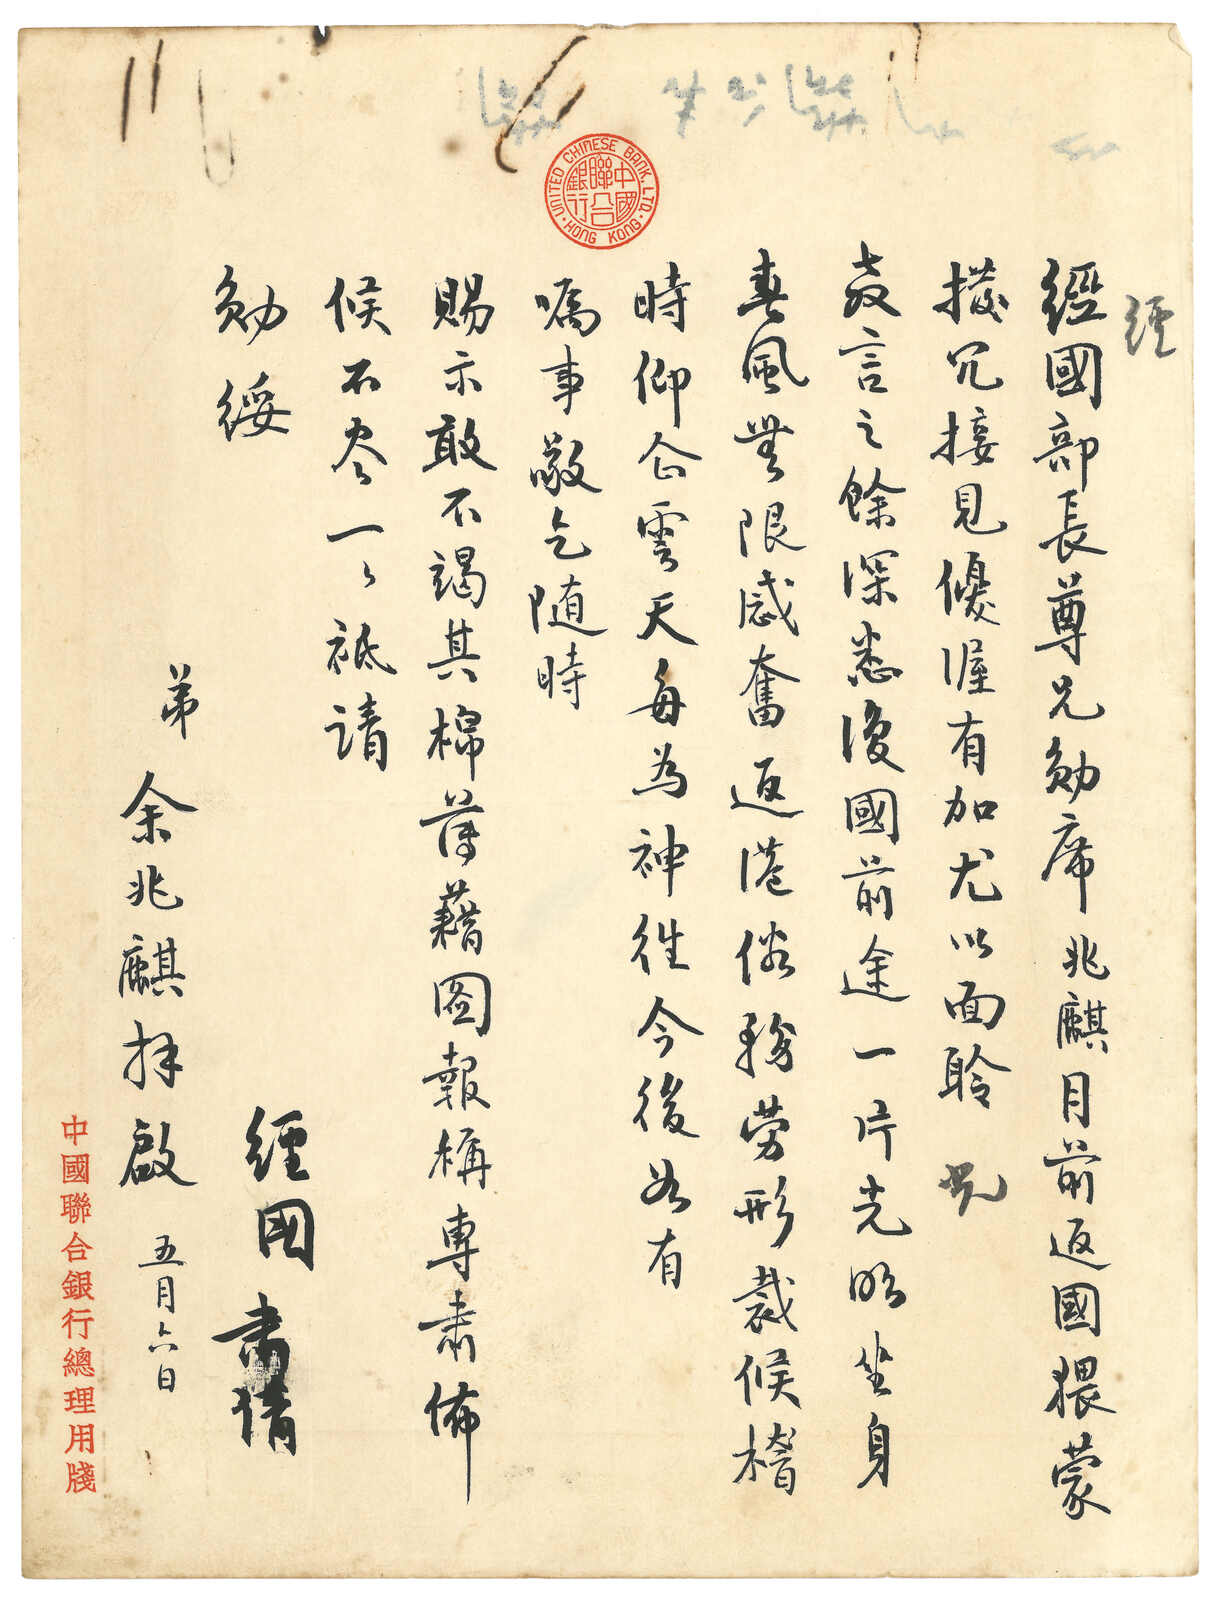 經
經國部長尊兄勛席兆麒月前返國猥蒙
撥冗接見優渥有加尤以面聆
教言之餘深悉復國前途一片光明坐身
春風無限感奮返港俗務勞形裁候稽
時仰企雲天每為神往今後如有
囑事敬乞随時
賜示敢不竭其棉薄藉圖報稱專肅佈
候不尽一一祗請
勛綏
弟余兆麒拜啟 五月六日
經國
肅請
UNITED CHINESE BANK, LTD. HONG KONG
中國聯合銀行
中國聯合銀行總理用牋